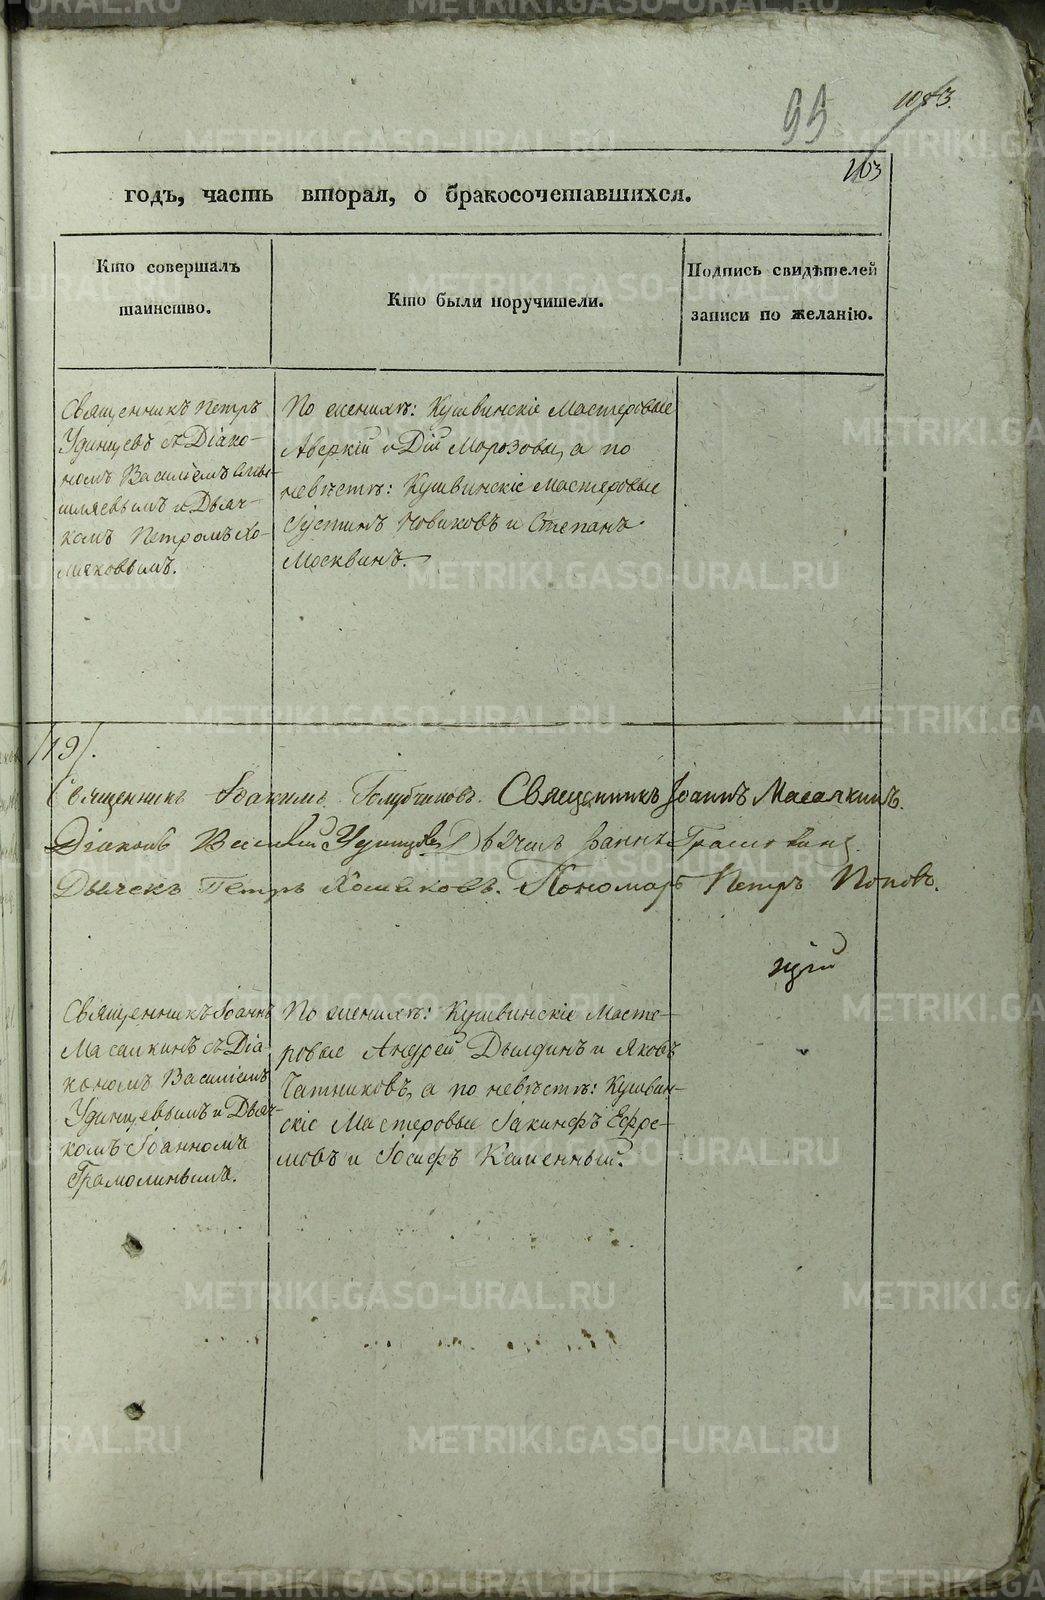 99
1083.
103
годъ, часть вторая, о бракосочетавшихся.
Кто совершалъ
таинство.
Кто были поручители.
Подпись свидѣтелей
записи по желанію.
Священникъ Петръ
Удинцевъ съ Діако-
номъ Василіемъ
и Дьяч-
комъ Петромъ Хо-
мяковымъ.
По женихѣ: Кушвинскіе Мастеровые
Аверкій и Дій Морозовы, а по
невѣстѣ: Кушвинскіе Мастеровые
Іустинъ Новиковъ и Степанъ
Москвинъ.
19).
Священникъ Іоакимъ Голубчиковъ. Священникъ Іоаннъ Масалкинъ.
Діаконъ Василий Удинцовъ Дьячекъ Іоаннъ Грамолинъ.
Дьячекъ Петръ Хомяковъ. Пономарь Петръ Поповъ.
Священникъ Іоаннъ
Масалкинъ съ Діа-
кономъ Василіемъ
Удинцевымъ и Дьяч-
комъ Іоанномъ
Грамолинымъ.
По женихѣ: Кушвинскіе Масте-
ровые Андрей Дылдинъ и Яковъ
Чатниковъ, а по невѣстѣ: Кушвин-
скіе Мастеровые Іакинфъ Ефре-
мовъ и Іосифъ Каменный.
METRIKI.GASO-URAL.RU